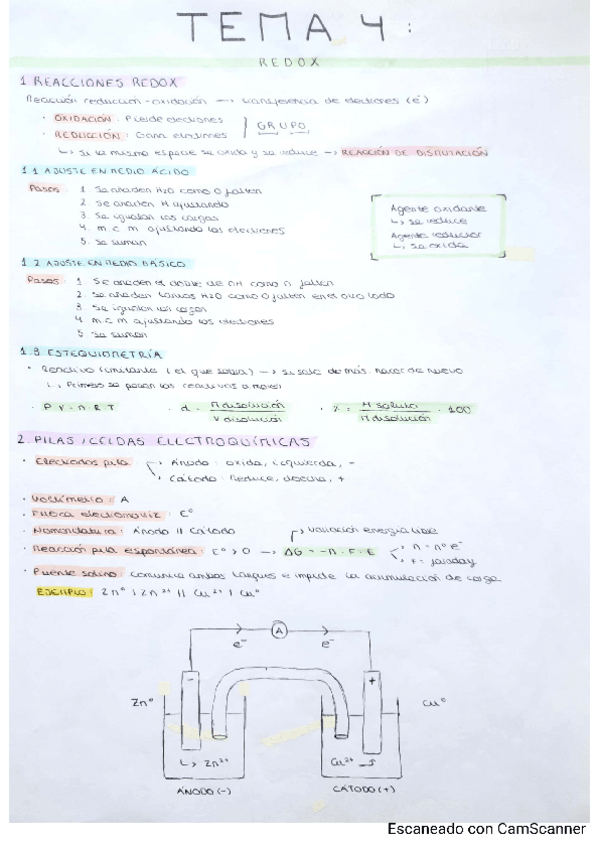 TEMA 4:
REDOX
1 REACCIONES REDOX
Reacción reducción-oxidación → transferencia de electrones (e⁻)
· OXIDACIÓN: Pierde electrones
GRUPO
· REDUCCIÓN: Gana electrones
↳ si la misma especie se oxida y se reduce → REACCIÓN DE DISMUTACIÓN
1.1 AJUSTE EN MEDIO ÁCIDO
Pasos: 1. Se añaden H2O como O falten
2. Se añaden H ajustando
3. Se igualan las cargas
4. m.c.m ajustando los electrones
5. Se suman
Agente oxidante
↳ se reduce
Agente reductor
↳ se oxida
1.2 AJUSTE EN MEDIO BÁSICO
Pasos: 1 Se añaden el doble de OH como O falten
2. Se añaden tantos H2O como O falten en el otro lado
3 Se igualan las cargas
4 m.c.m ajustando los electrones
5 Se suman
1.3 ESTEQUIOMETRÍA
· Reactivo limitante (el que sobra) → si sale de más, hacer de nuevo
↳ Primero se pasan los reactivos a moles
· P·V=n·R·T · d = m disolución / V disolución · % = M soluto / M disolución · 100
2. PILAS / CELDAS ELECTROQUÍMICAS
· Electrodos pila: Ánodo: oxida, izquierda, -
Cátodo: Reduce, derecha, +
· Voltímetro: A
· Fuerza electromotriz: E°
· Nomenclatura: Ánodo || Cátodo
↱ variación energía libre
· Reacción pila espontánea: E° > 0 → ΔG = -n·F·E
n = nº e⁻
F = faraday
· Puente salino: comunica ambos tanques e impide la acumulación de carga
EJEMPLO: Zn° | Zn²⁺ || Cu²⁺ | Cu°
A
e⁻ e⁻
- +
Zn° Cu°
↳ Zn²⁺ Cu²⁺
ÁNODO (-) CÁTODO (+)
Escaneado con CamScanner